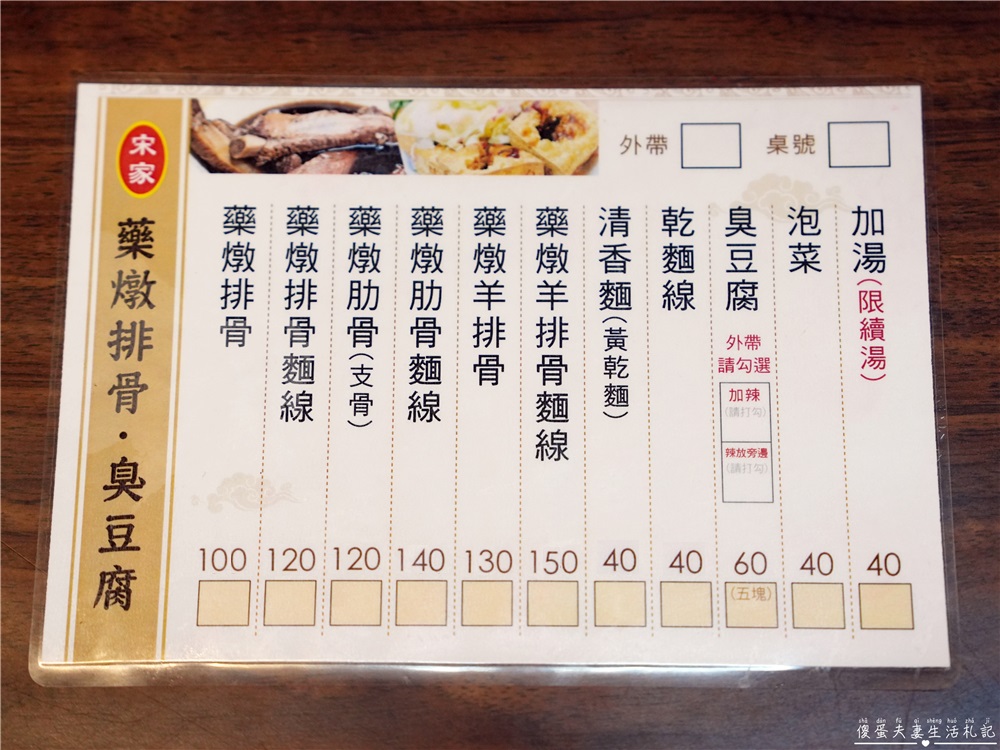 宋家
藥燉排骨·臭豆腐
外帶
桌號
藥燉排骨
100
藥燉排骨麵線
120
藥燉肋骨(支骨)
120
藥燉肋骨麵線
140
藥燉羊排骨
130
藥燉羊排骨麵線
150
清香麵(黃乾麵)
40
乾麵線
40
臭豆腐
外帶
請勾選
加辣
(請打勾)
辣放旁邊
(請打勾)
60
(五塊)
泡菜
40
加湯(限續湯)
40
shǎ dàn fū qī shēng huó zhá jì
傻蛋夫妻生活札記